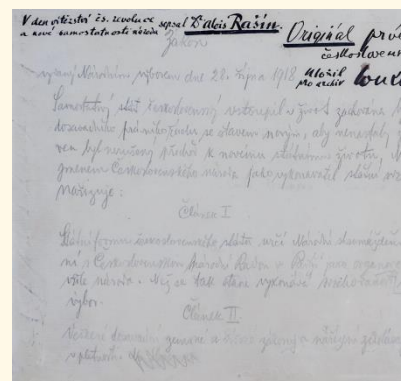 V den vítězství čs. revoluce
a nové samostatnosti národa sepsal Dr Alois Rašín.
Originál
československ
uložil
pro archiv
Zákon
vydaný Národním výborem dne 28. října 1918
Samostatný stát československý vstoupil v život
dosavadního právního řádu se stavem novým, aby nenastaly
byl k novému státnímu životu,
jménem Československého národa jako vykonavatel státní
nařizuje:
Článek I
Státní formu československého státu určí Národní shromáždění
ní s Československou Národní Radou v Paříži jako
vůle národa. Než se tak stane vykonává
výbor.
Článek II.
Veškeré dosavadní zemské a říšské zákony a nařízení
v platnosti.